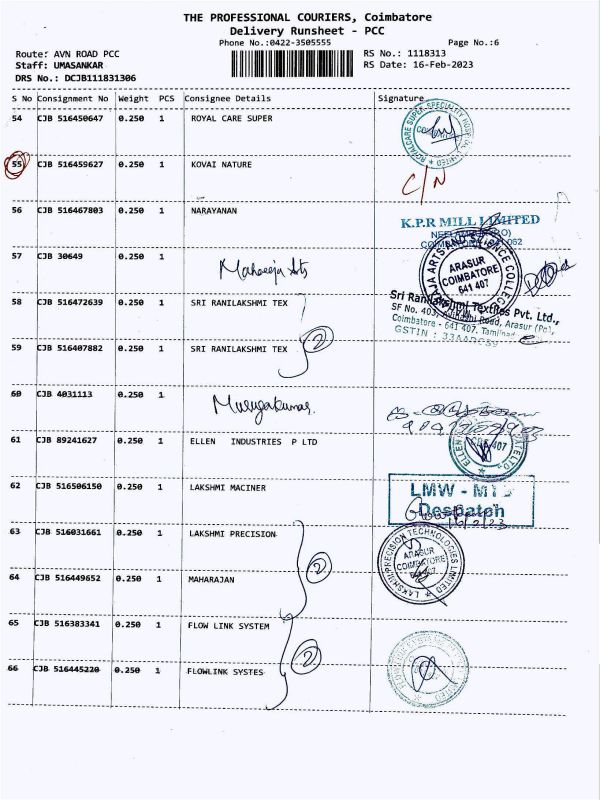 THE PROFESSIONAL COURIERS, Coimbatore
Delivery Runsheet - PCC
Phone No.:0422-3505555 Page No.:6
Route: AVN ROAD PCC RS No.: 1118313
Staff: UMASANKAR RS Date: 16-Feb-2023
DRS No.: DCJB111831306
S No Consignment No Weight PCS Consignee Details Signature
54 CJB 516450647 0.250 1 ROYAL CARE SUPER
55 CJB 516459627 0.250 1 KOVAI NATURE C/N
56 CJB 516467803 0.250 1 NARAYANAN
K.P.R MILL LIMITED
57 CJB 30649 0.250 1 Maharaja Arts
ARASUR
COIMBATORE
641 407
58 CJB 516472639 0.250 1 SRI RANILAKSHMI TEX
Sri Ranilakshmi Textiles Pvt. Ltd.,
SF No. 403, Road, Arasur (Po),
Coimbatore - 641 407. Tamilnad
GSTIN : 33AADCS9
2
59 CJB 516407882 0.250 1 SRI RANILAKSHMI TEX
60 CJB 4031113 0.250 1 Murugakumar.
61 CJB 89241627 0.250 1 ELLEN INDUSTRIES P LTD
62 CJB 516506150 0.250 1 LAKSHMI MACINER
LMW - MTD
Despatch
16/2/23
63 CJB 516031661 0.250 1 LAKSHMI PRECISION
LAKSHMI PRECISION TECHNOLOGIES LIMITED
ARASUR
COIMBATORE
2
64 CJB 516449652 0.250 1 MAHARAJAN
65 CJB 516383341 0.250 1 FLOW LINK SYSTEM
2
66 CJB 516445220 0.250 1 FLOWLINK SYSTES